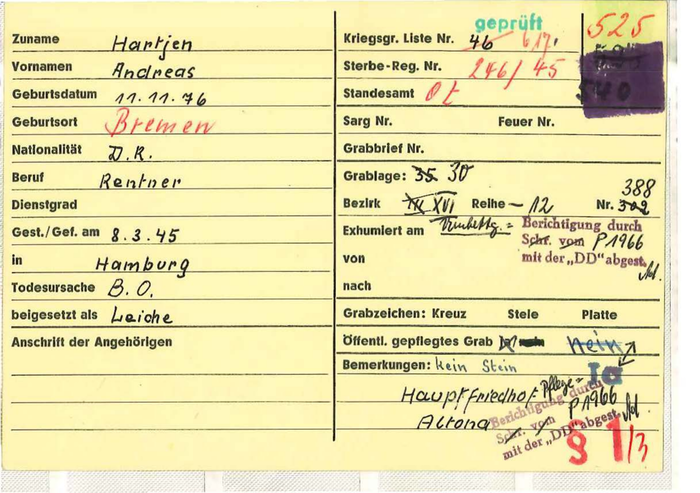 Zuname Hartjen
Vornamen Andreas
Geburtsdatum 11.11.76
Geburtsort Bremen
Nationalität D.R.
Beruf Rentner
Dienstgrad
Gest./Gef. am 8.3.45
in Hamburg
Todesursache B.O.
beigesetzt als Leiche
Anschrift der Angehörigen
geprüft
525
Kriegsgr. Liste Nr. 46 617
Sterbe-Reg. Nr. 246/45
540
Standesamt Ot
Sarg Nr. Feuer Nr.
Grabbrief Nr.
Grablage: 35 30
388
Bezirk XVI Reihe – 12 Nr. 302
Exhumiert am
Berichtigung durch
Schr. vom P1966
mit der „DD" abgest.
von
nach
Grabzeichen: Kreuz Stele Platte
Öffentl. gepflegtes Grab ja nein nein
Bemerkungen: Kein Stein Ja
Hauptfriedhof Pflege=
Altona
Berichtigung durch
Schr. vom P1966
mit der „DD" abgest.
§ 1/3